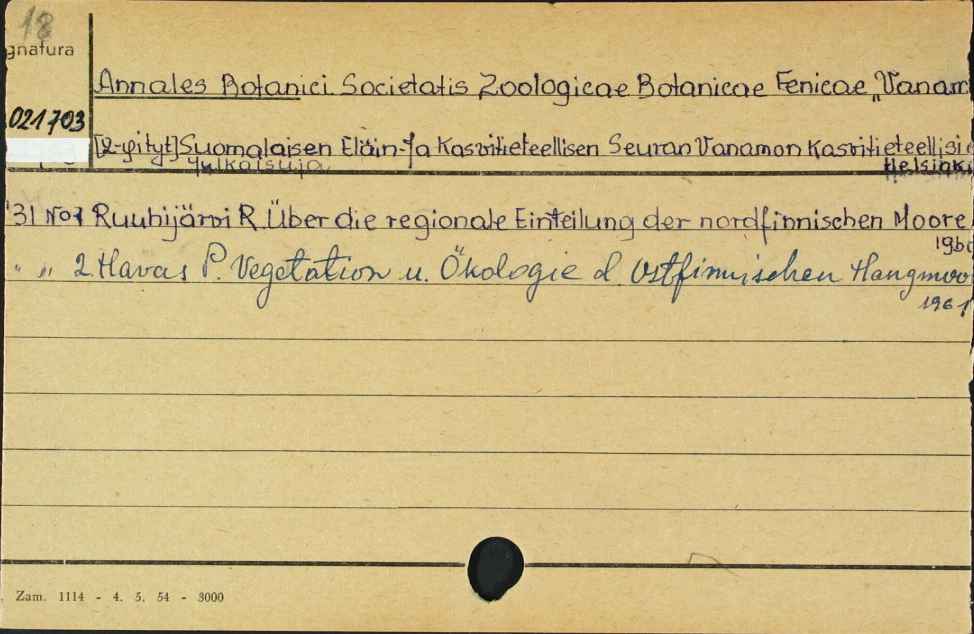 18
gnatura
Annales Botanici Societatis Zoologicae Botanicae Fenicae „Vanam
021703
[2-yityt] Suomalaisen Eläin-Ja Kasvitieteellisen Seuran Vanamon Kasvitieteellisi
Julkaisuja. Helsinki
31 No1 Ruuhijärvi R. Über die regionale Einteilung der nordfinnischen Moore
1960
" „ 2 Havas P. Vegetation u. Ökologie d. Ostfinnischen Hangmoo
1961
Zam. 1114 - 4. 5. 54 - 3000